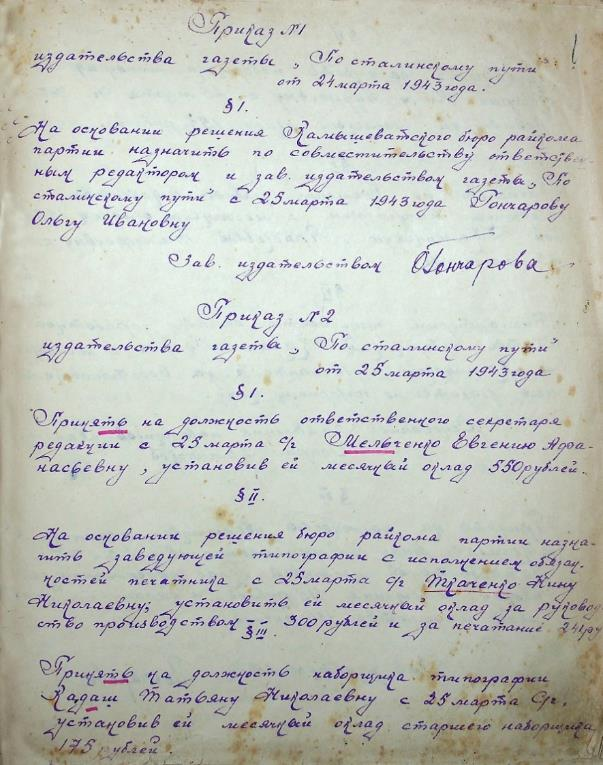 Приказ №1
издательства газеты „По сталинскому пути"
от 24 марта 1943 года.
§ 1.
На основании решения Камышеватского бюро райкома
партии назначить по совместительству ответствен-
ным редактором и зав. издательством газеты „По
сталинскому пути" с 25 марта 1943 года Гончарову
Ольгу Ивановну
Зав. издательством ОГончарова
Приказ №2
издательства газеты „По сталинскому пути"
от 25 марта 1943 года
§ 1.
Принять на должность ответственного секретаря
редакции с 25 марта с/г Мельченко Евгению Афа-
насьевну, установив ей месячный оклад 550 рублей.
§ II.
На основании решения бюро райкома партии назна-
чить заведующей типографии с исполнением обязан-
ностей печатника с 25 марта с/г Ткаченко Нину
Николаевну; установить ей месячный оклад за руковод
ство производством 300 рублей и за печатание 241 ру
§ III.
Принять на должность наборщика типографии
Кадаш Татьяну Николаевну с 25 марта с/г.
установив ей месячный оклад старшего наборщика
175 рублей.